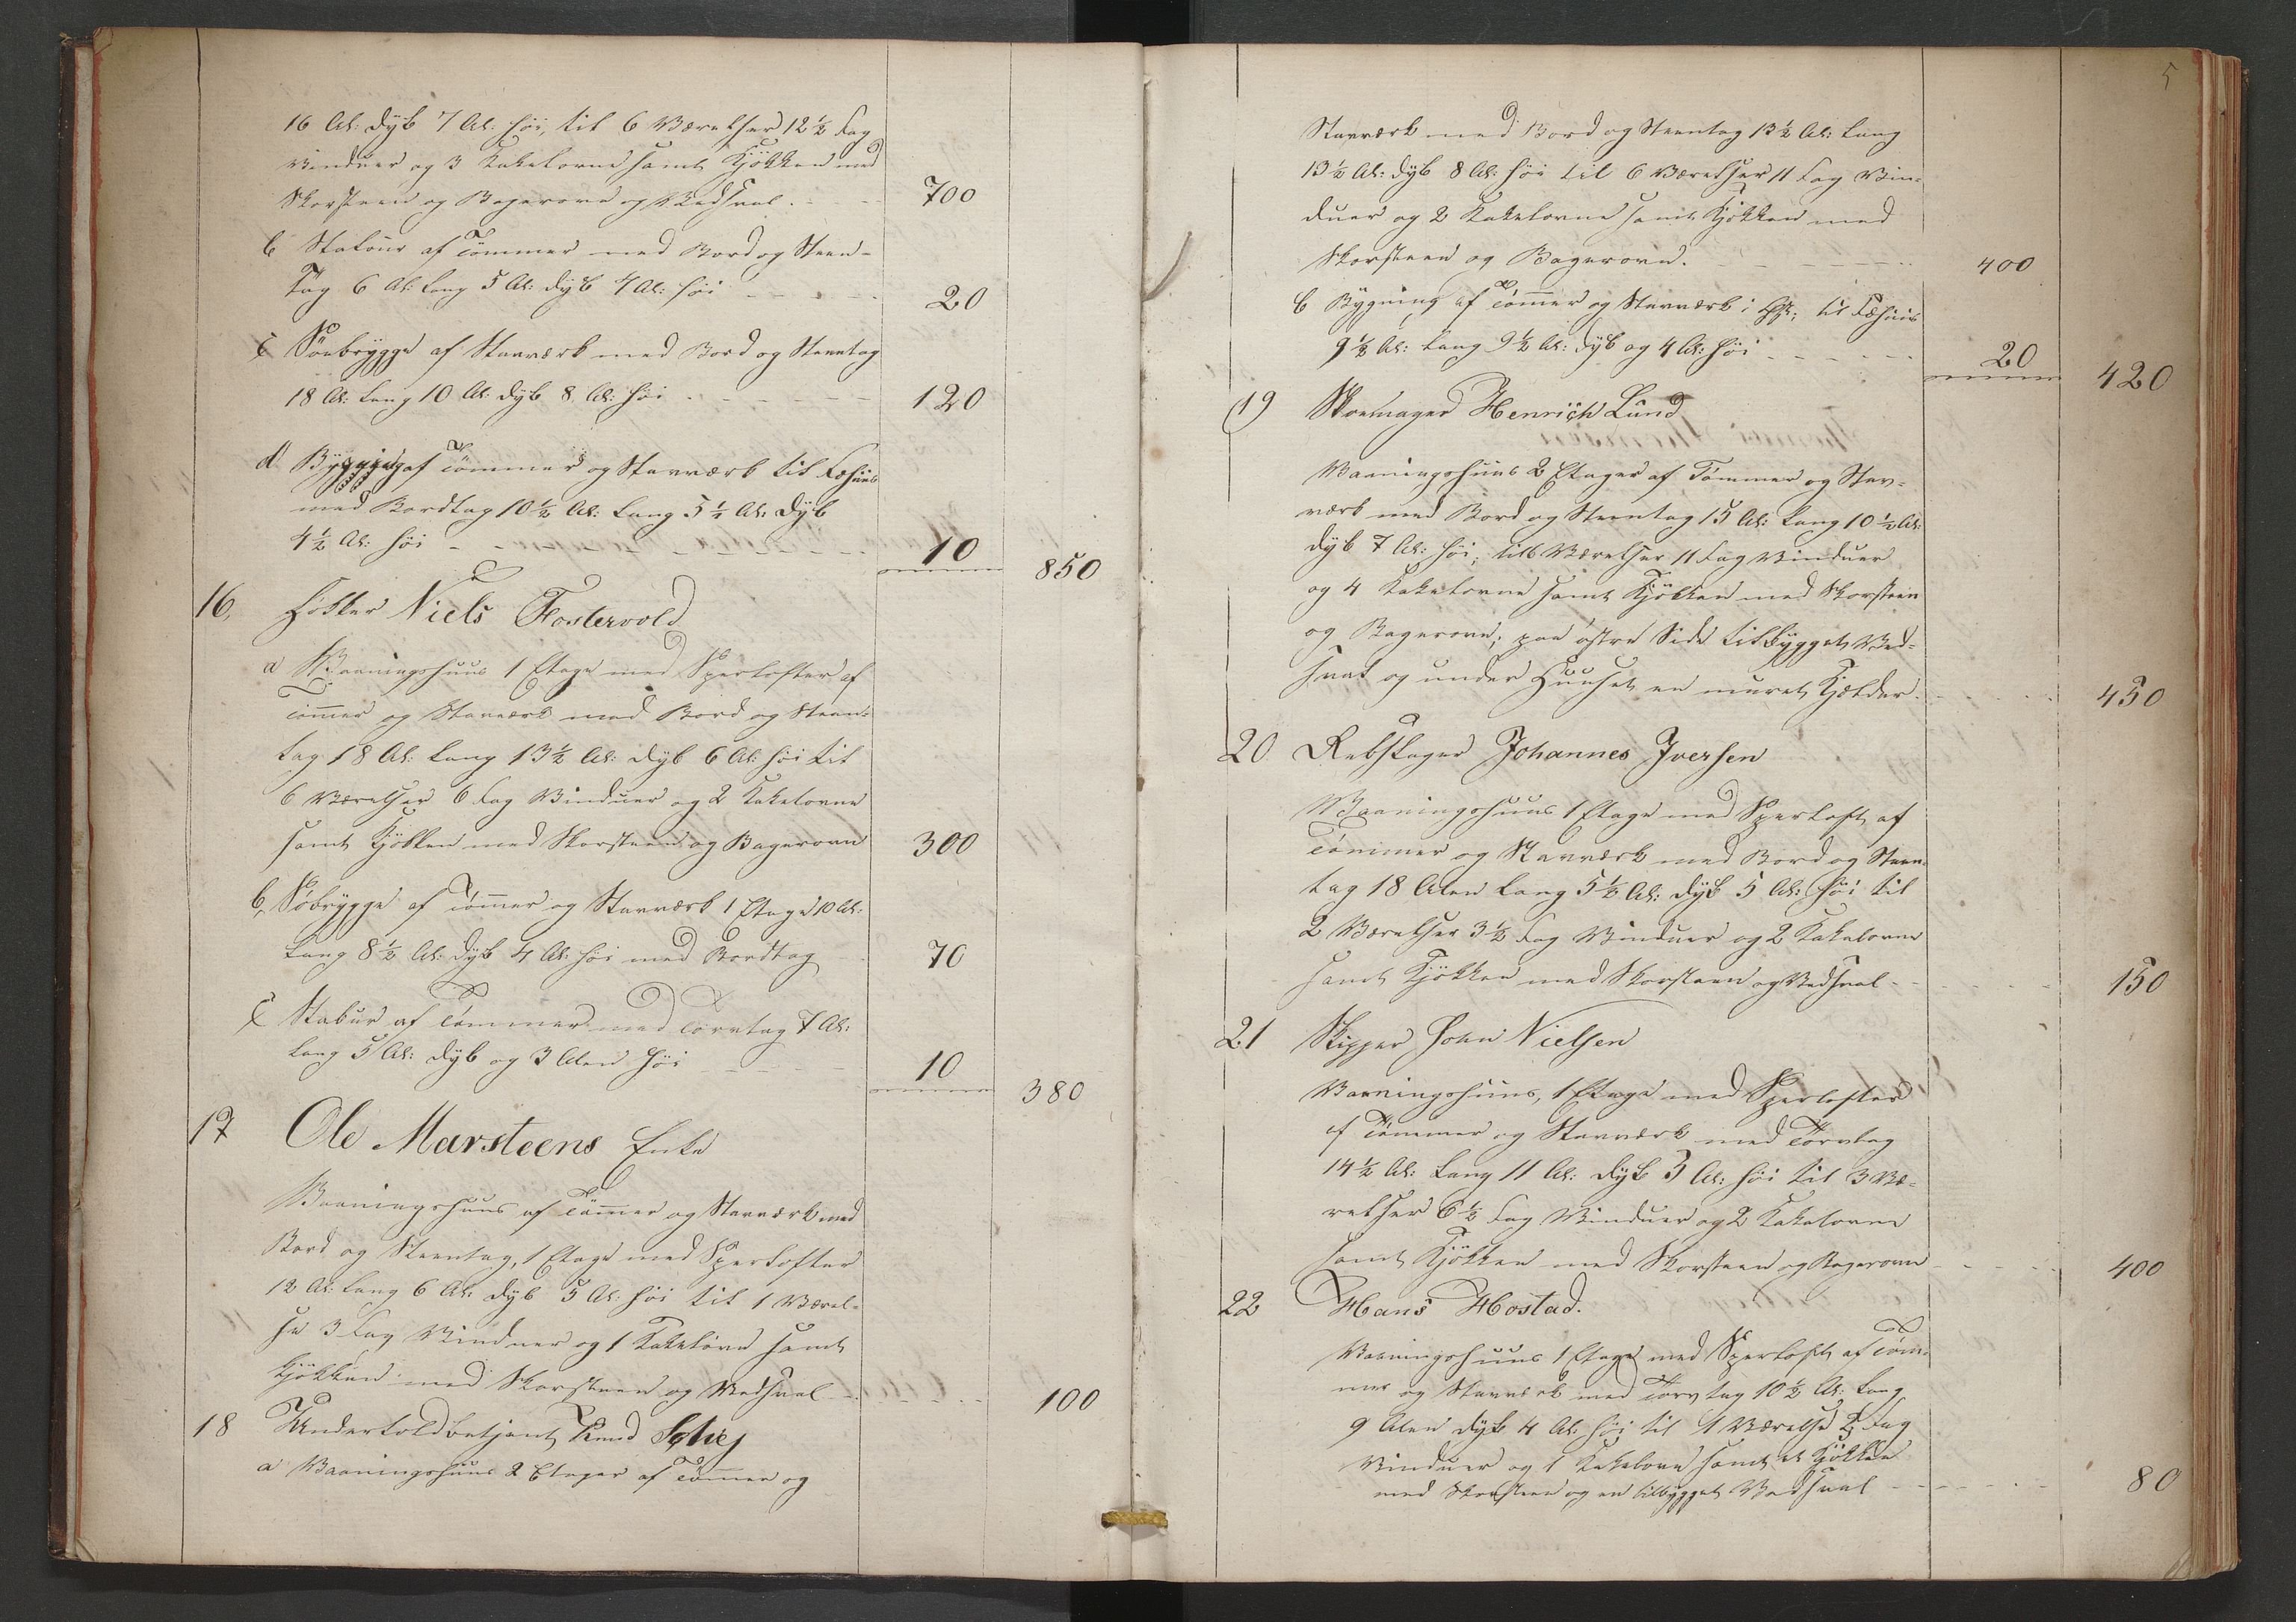 16 Al: dyb 7 Al: høi, til 6 Værelser 12½ Fag
Vinduer og 3 Kakelovne samt Kjøkken med
Skorsteen og Bagerovn og Vedsval. 700
b Stabuur af Tømmer med Bord og Steen-
Tag 6 Al: lang 5 Al: dyb 4 Al: høi 20
c Søebrygge af Stavværk med Bord og Steentag
18 Al: lang 10 Al: dyb 8 Al: høi 120
d Bygning af Tømmer og Stavværk til Fæhuus
med Bordtag 10½ Al: lang 5½ Al: dyb
4½ Al: høi 10 850
16, Høker Niels Fostervold
a Vaaningshuus 1 Etage med Sperlofter af
Tømmer og Stavværk med Bord og Steen-
tag 18 Al: lang 13½ Al: dyb 6 Al: høi til
6 Værelser 6 Fag Vinduer og 2 Kakelovne
samt Kjøkken med Skorsteen og Bagerovn 300
b, Søbrygge af Tømmer og Stavværk 1 Etage 10 Al:
lang 8½ Al: dyb 4 Al: høi med Bordtag 70
c Stabur af Tømmer med Torvtag 7 Al:
lang 5 Al: dyb og 3 Alen høi 10 380
17 Ole Marsteens Enke
Vaaningshuus af Tømmer og Stavværk med
Bord og Steentag, 1 Etage med Sperlofter
12 Al: lang 6 Al: dyb 5 Al: høi til 1 Værel-
se 3 Fag Vinduer og 1 Kakelovn samt
Kjøkken med Skorsteen og Vedsval 100
18 Undertoldbetjent Knud Schej
a Vaaningshuus 2 Etager af Tømmer og
5
Stavværk med Bord og Steentag 13½ Al: lang
13½ Al: dyb 8 Al: høi til 6 Værelser 11 Fag Vin-
duer og 2 Kakelovne samt Kjøkken med
Skorsteen og Bagerovn. 400
b Bygning af Tømmer og Stavværk i til Fæhuus
9½ Al: lang 9½ Al: dyb og 4 Al: høi 20 420
19 Skomager Henrich Lund
Vaaningshuus 2 Etager af Tømmer og Stav-
værk med Bord og Steentag 15 Al: lang 10½ Al:
dyb 7 Al: høi, til Værelser 11 Fag Vinduer
og 4 Kakelovne samt Kjøkken med Skorsteen
og Bagerovn; paa østre Side tilbygget Ved-
sval og under Huuset en muret Kjelder. 450
20 Rebslager Johannes Iversen
Vaaningshuus 1 Etage med Sperloft af
Tømmer og Stavværk med Bord og Steen-
tag 18 Alen lang 5½ Al: dyb 5 Al: høi til
2 Værelser 3½ Fag Vinduer og 2 Kakelovne
samt Kjøkken med Skorsteen og Vedsval 150
21 Skipper John Nielsen
Vaaningshuus, 1 Etage med Sperlofter
af Tømmer og Stavværk med Torvtag
14½ Al: lang 11 Al: dyb 5 Al: høi til 3 Væ-
relser 6½ Fag Vinduer og 2 Kakelovne
samt Kjøkken med Skorsteen og Bagerovn 400
22 Hans Hostad.
Vaaningshuus 1 Etage med Sperloft af Tøm-
mer og Stavværk med Torvtag 10½ Al: lang
9 Alen dyb 4 Al: høi til 1 Værelse Fag
Vinduer og 1 Kakelovn samt et Kjøkken
med Skorsteen og en tilbygget Vedsval 80